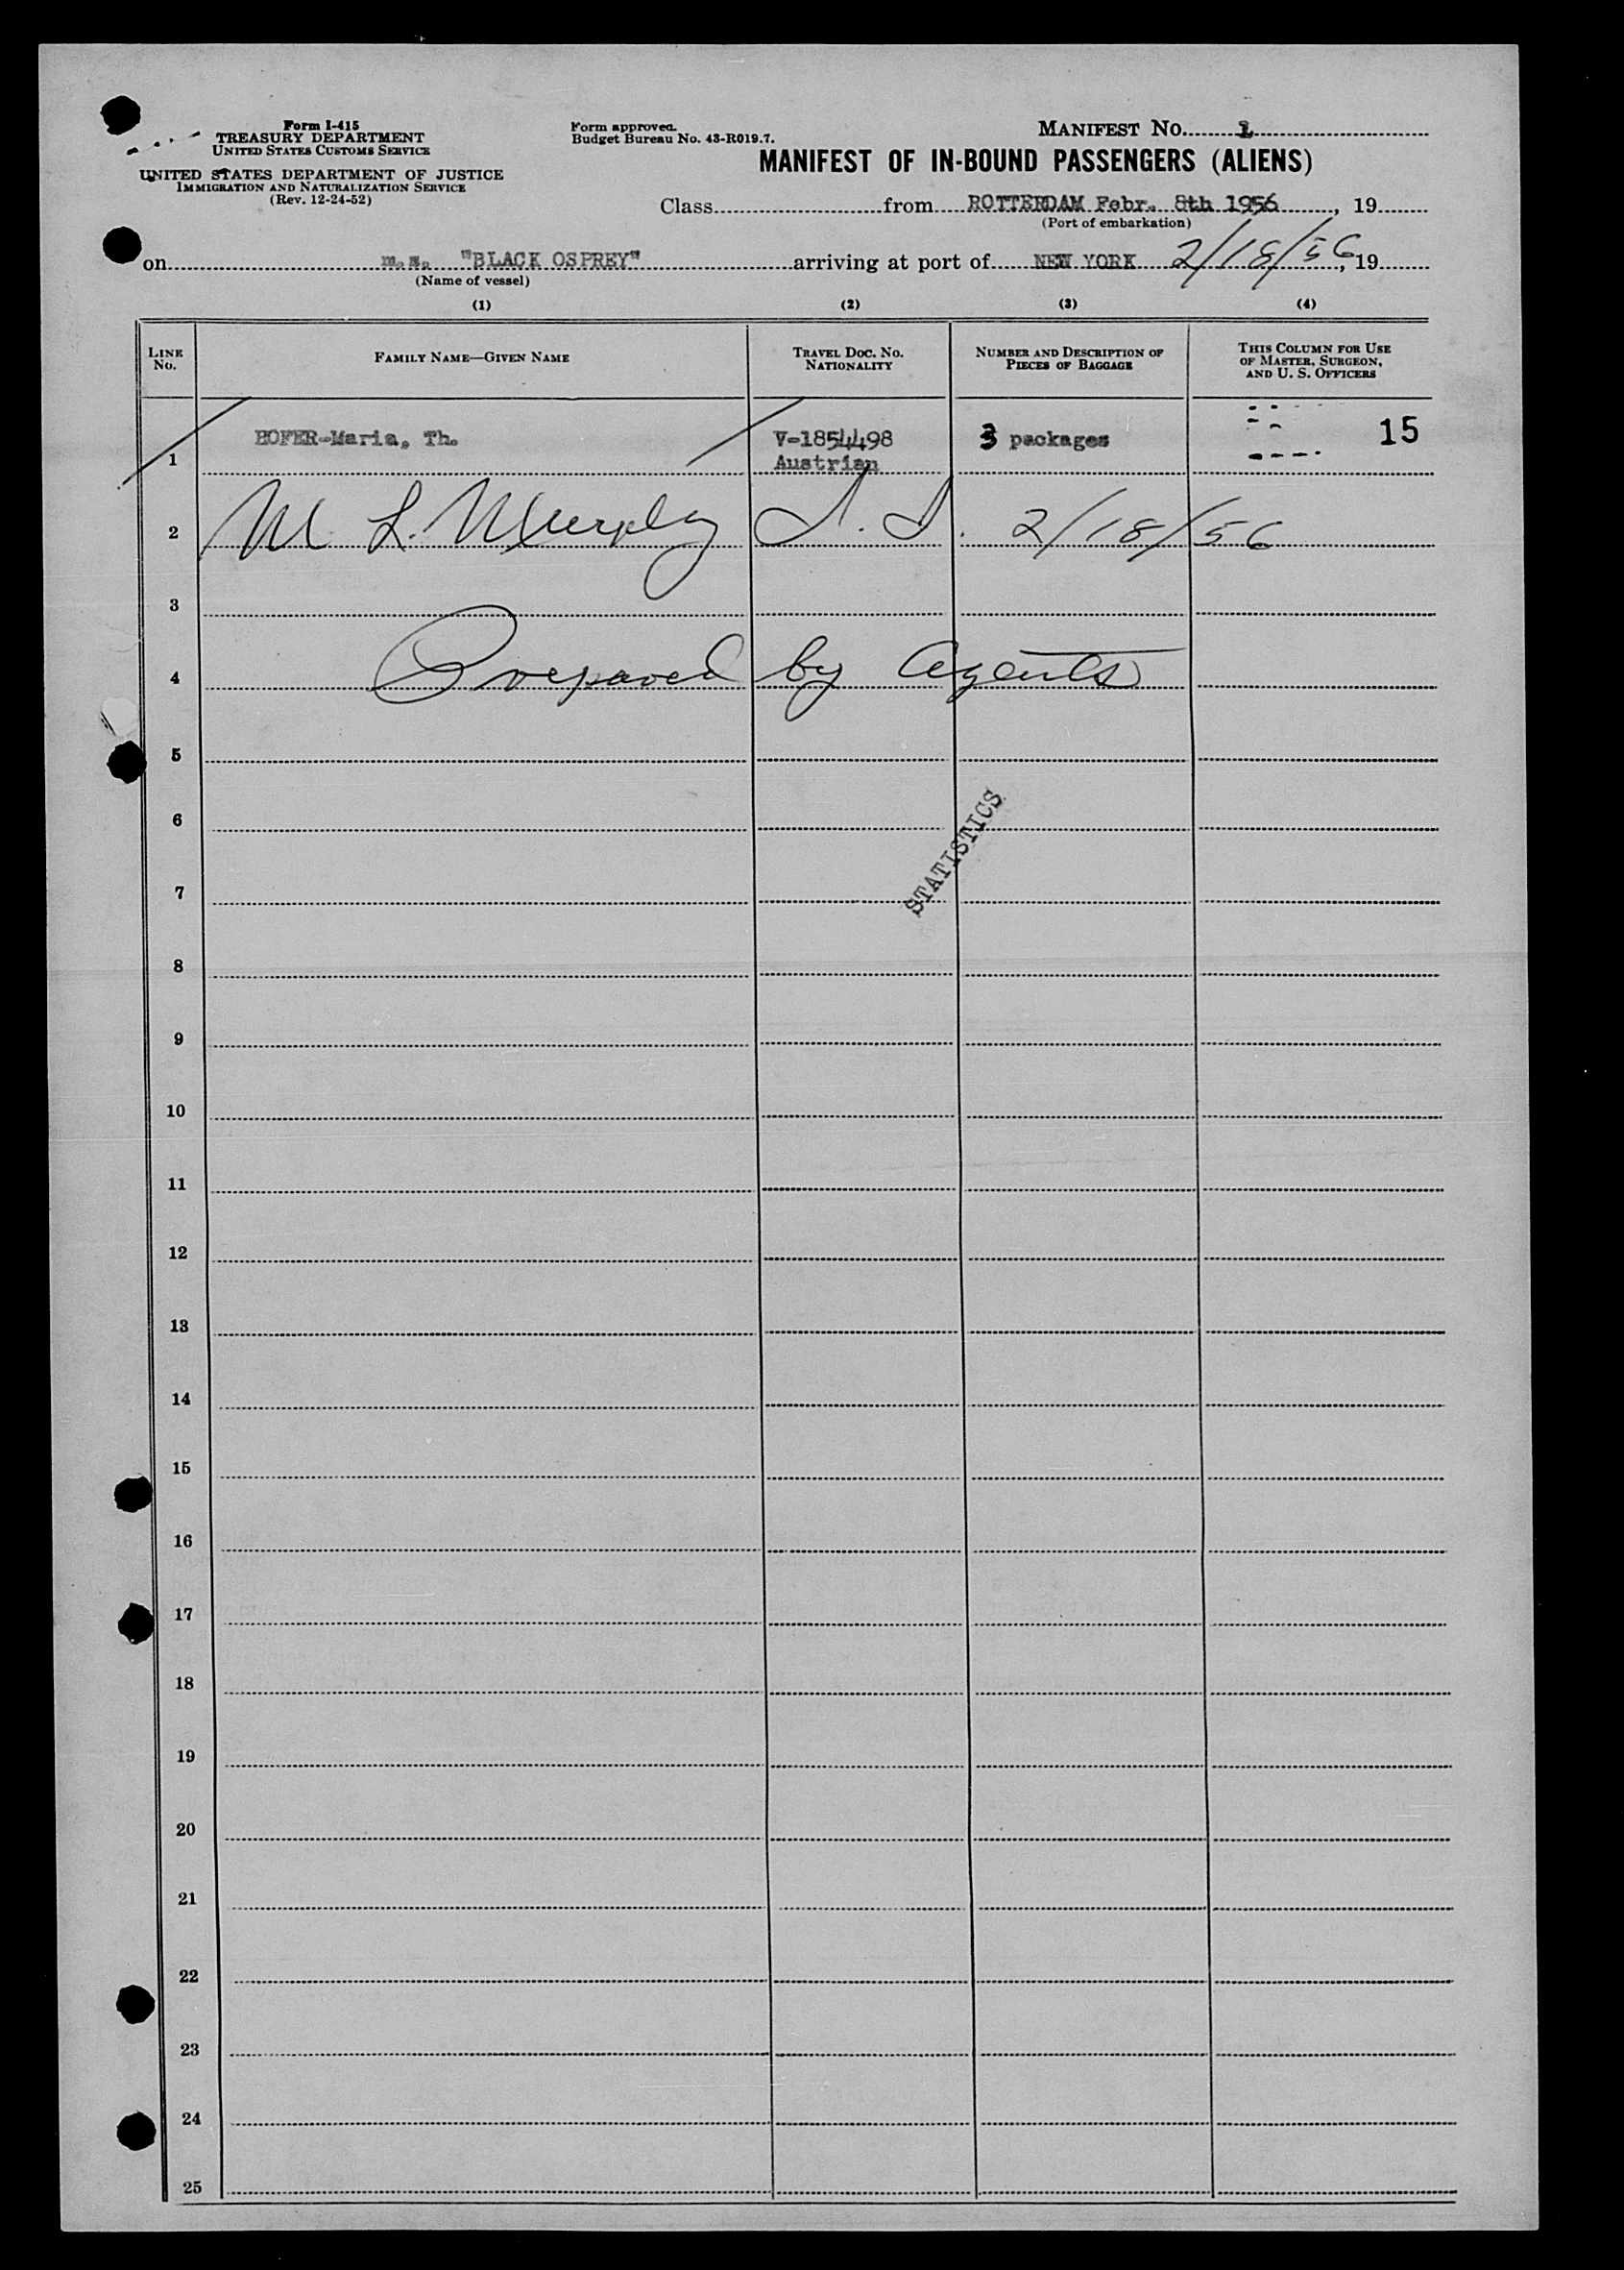 Form I-415
TREASURY DEPARTMENT
UNITED STATES CUSTOMS SERVICE
UNITED STATES DEPARTMENT OF JUSTICE
IMMIGRATION AND NATURALIZATION SERVICE
(Rev. 12-24-52)
Form approved.
Budget Bureau No. 43-R019.7.
MANIFEST No. 1
MANIFEST OF IN-BOUND PASSENGERS (ALIENS)
Class from ROTTERDAM Febr. 8th 1956, 19
(Port of embarkation)
on m.s. "BLACK OSPREY" arriving at port of NEW YORK 2/18/56, 19
(Name of vessel)
(1) (2) (3) (4)
LINE No. FAMILY NAME—GIVEN NAME TRAVEL DOC. No. NATIONALITY NUMBER AND DESCRIPTION OF PIECES OF BAGGAGE THIS COLUMN FOR USE OF MASTER, SURGEON, AND U. S. OFFICERS
1 HOFER-Maria, Th. V-1854498 3 packages 15
Austrian
2 M L. Murphy I. I. 2/18/56
3
4 Prepared by Agents
5
6
STATISTICS
7
8
9
10
11
12
13
14
15
16
17
18
19
20
21
22
23
24
25